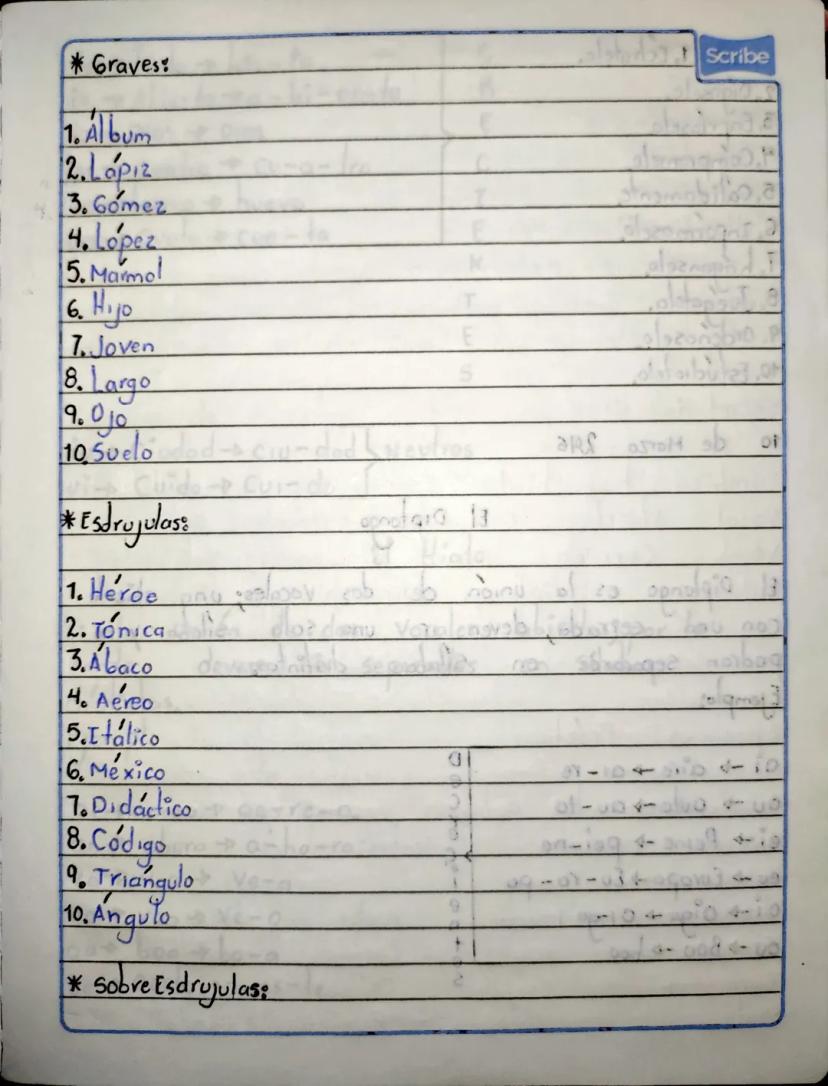 Scribe
* Graves:
1. Álbum
2. Lápiz
3. Gómez
4. López
5. Mármol
6. Hijo
7. Joven
8. Largo
9. Ojo
10. Suelo
* Esdrujulas:
1. Héroe
2. Tónica
3. Ábaco
4. Aéreo
5. Itálico
6. México
7. Didáctico
8. Código
9. Triángulo
10. Ángulo
* Sobre Esdrujulas: